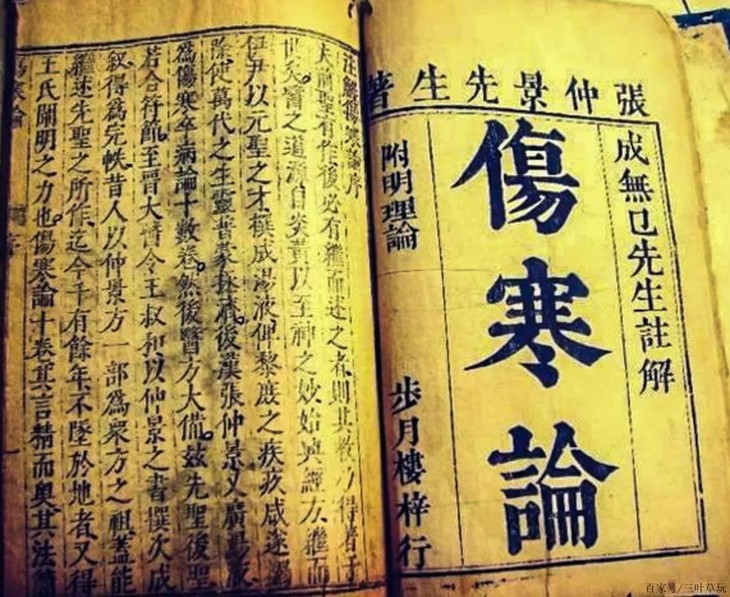 張仲景先生著
成無已先生註解
傷寒論
附明理論
步月樓梓行
注解傷寒論序
夫前聖有作後必有繼而述之者則其教乃得著于
世矣醫之道源自炎黃以至神之妙始興經方繼而
伊尹以元聖之才撰成湯液俾黎庶之疾疚咸遂蠲
除使萬代之生靈普蒙拯濟後漢張仲景又廣湯液
為傷寒卒病論十數卷然後醫方大備茲先聖後聖
若合符節至晉大醫令王叔和以仲景之書撰次成
敘得為完帙昔人以仲景方一部為衆方之祖蓋能
繼述先聖之所作迄今千有餘年不墜於地者又得
王氏闡明之力也傷寒論十卷其言精而奧其法簡
傷寒論
百家号/三叶草玩